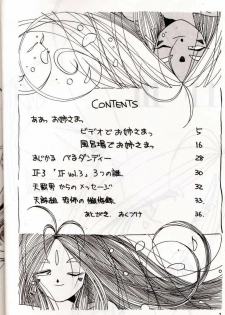 CONTENTS
ああっお姉さまっ
ビデオでお姉さまっ 5
風呂場でお姉さまっ 16
まじかる べるダンディー 28
IF3 「IF Vol.3」 3つの謎 30
天獣男からのメッセージ 32
33.
あとがき、おくつけ 36.